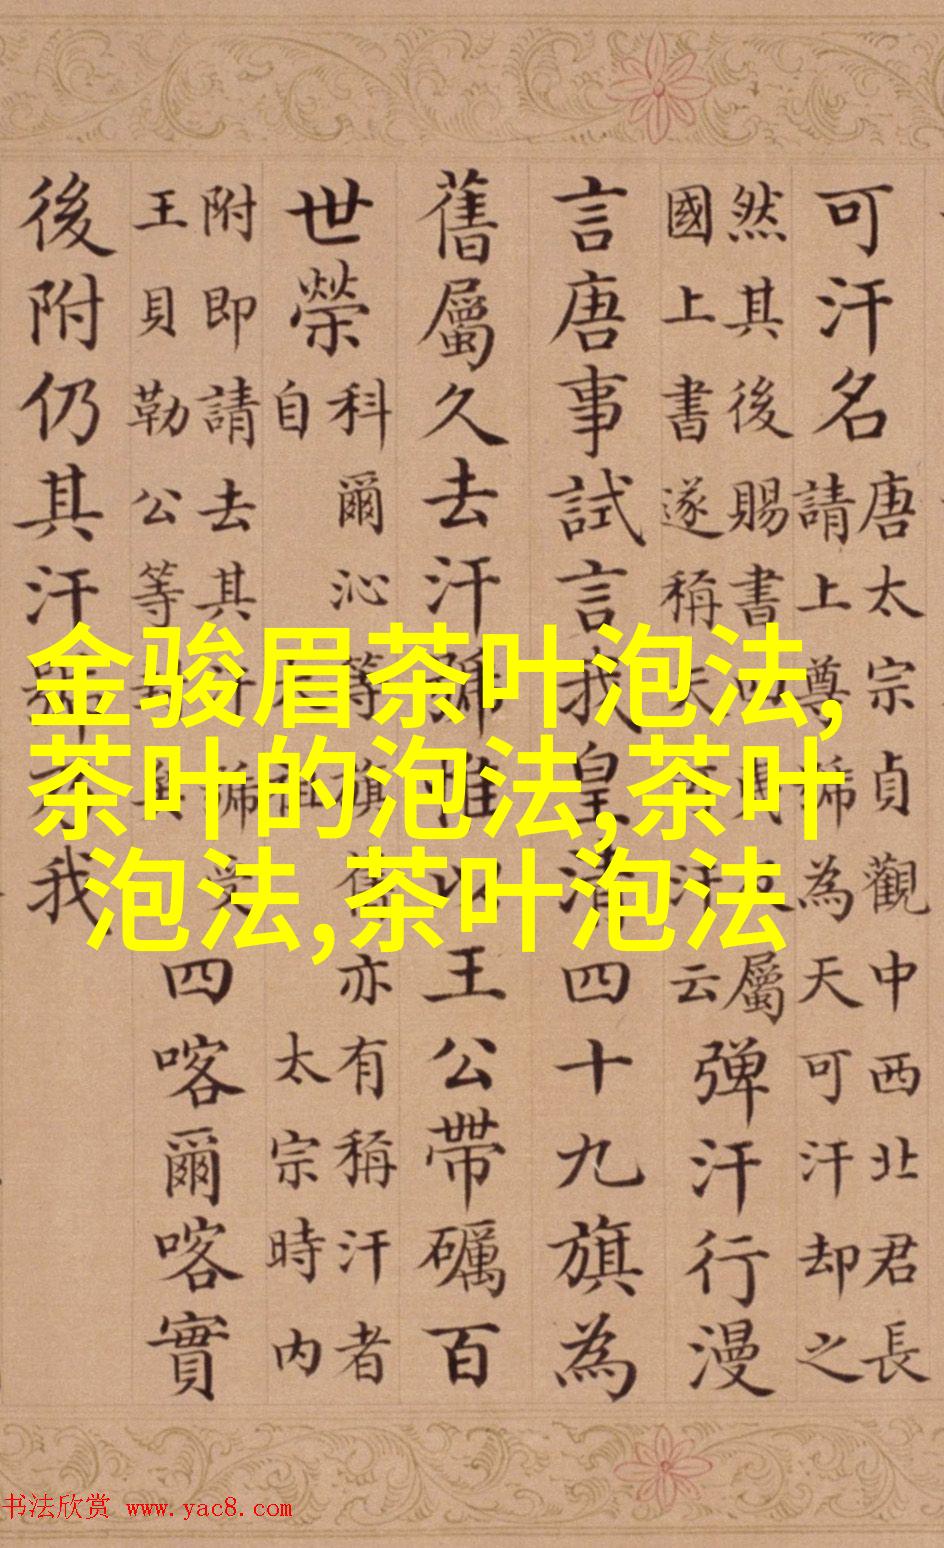 可汗名
唐太宗貞觀中西北君長
請上尊號為天可汗却之
然其後賜書
屬
國上書遂稱天可汗云
弹汗行漫
言唐事試言我皇清四十九旗為
舊屬久去汗號惟以王公帶礪百
世榮
科爾沁等旗舊亦有稱汗者
自
太宗時内
附即請去其汗號受
王貝勒公等
四喀爾喀實
後附仍其汗號
我
金骏眉茶叶泡法,
茶叶的泡法,茶叶
泡法,茶叶泡法
书法欣赏 www.yac8.com